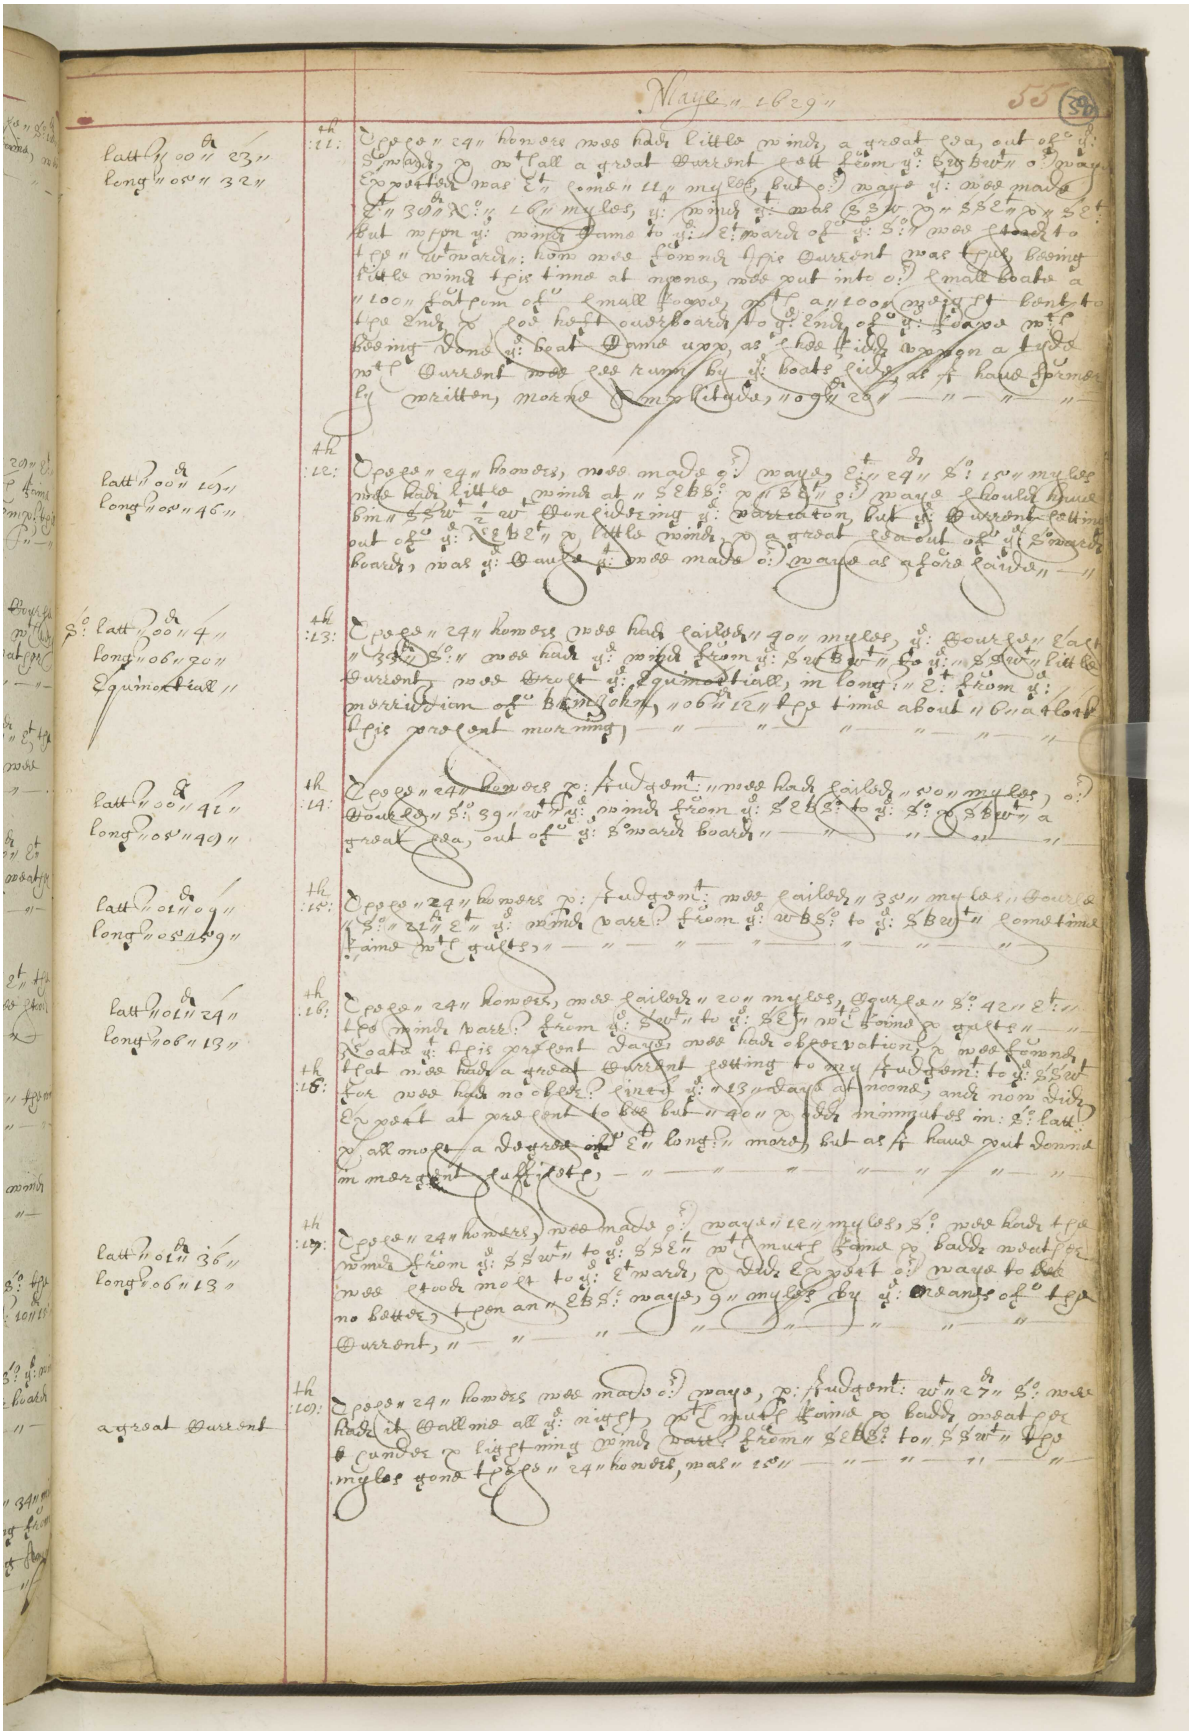 Maye " 1629 "
55
50
latt? " 00 " 23 "
long " 05 " 32 "
th
:11: These " 24 " howers wee had little wind, a great sea, out of ye:
So:ward, & wth all a great Current sett from ye: SW o:r way
Expected was Et some " 11 " myles, but o:r waye yt: wee made
Et " 30d " No: " 16 " myles, ye: wind yt: was SSW & " SSEt & " SEt:
but when ye: wind Came to ye: Et:ward of ye: So: " wee stood to
the " Wt ward " : how wee fownd this Current was thus, beeing
little wind this time at noone, wee put into o:r small boate a
" 100 " fathom of small roape, wth a " 100 " weight bent to
the End, & soe heft overboard to ye: End of ye: roape wch
beeing done ye: boat Came upp, as shee ridd uppon a tyde
wch Current wee see runn by ye: boats side, as I have former
ly written, morne Amplitude, " 09d " 20 "
latt? " 00d " 19 "
long? " 05 " 46 "
th
:12: These " 24 " howers, wee made o:r waye, E:t " 24d " So: 15 " myles
wee had little wind at " SEBSo: & " SEt " o:r waye should have
bin " SSWt 1/2 Wt Considering ye: varriaton, but ye: Current setting
out of ye: NEBEt " & little wind, & a great sea out of ye: So:ward
board, was ye: Cause yt: wee made o:r waye as afore saide "
So: latt? " 00d " 4 "
long " 06 " 20 "
Equinoctiall "
th
:13: These " 24 " howers wee had sailed " 40 " myles, ye: Course " East
" 35d " So: " wee had ye: wind from ye: SWBWt " to ye: " SSWt " little
Current, wee Crost ye: Equinoctiall, in long: " E:t from ye:
merridian of , " 06d " 12 " the time about " 6 " a Clock
this present morning,
latt? " 00d " 41 "
long? " 05 " 49 "
th
:14: These " 24 " howers p: Judgemt: " wee had sailed " 50 " myles, o:r
Course " So: 39 " Wt " ye: wind from ye: SEBSo: to ye: So: & SBWt " a
great sea, out of ye: So:ward board "
latt? " 01d " 09 "
long? " 05 " 59 "
th
:15: These " 24 " howers p: Judgemt: wee sailed " 35 " myles " Course
So: " 21d " Et " ye: wind varr? from ye: WBSo: to ye: SBWt " sometime
raine wth gusts, "
latt? " 01d " 24 "
long? " 06 " 13 "
th
:16: These " 24 " howers, wee sailed " 20 " myles, Course " So: 42 " Et: "
the wind varr? from ye: SWt " to ye: SEt " wth raine & gusts "
Noate yt: this present daye wee had observation, & wee fownd
th
:16: that wee had a great Current setting to my Judgemt: to ye: SSWt
for wee had no obser? since ye: " 13 " daye at noone, and now did
Expect at present to bee but " 40 " & odd minnutes in: So: latt:
& allmost a degree of Et " long: " more, but as I have put downe
in mergent sufficeth,
latt? " 01d " 36 "
long? " 06 " 13 "
th
:17: These " 24 " howers, wee made o:r waye " 12 " myles, So: wee had the
wind from ye: SSWt " to ye: SSEt " wth much raine & badd weather
wee stood most to ye: Etward, & did Expect o:r waye to bee
no better, then an " EBSo: waye, 9 " myles by ye: meanes of the
Current, "
a great Current
th
:19: These " 24 " howers wee made o:r waye, p: Judgemt: Wt " 27d " So: wee
had it Callme all ye: night, wth much raine & badd weather
thunder & lightning wind varr? from " SEBSo: to " SSWt " the
myles gone these " 24 " howers, was " 15 "